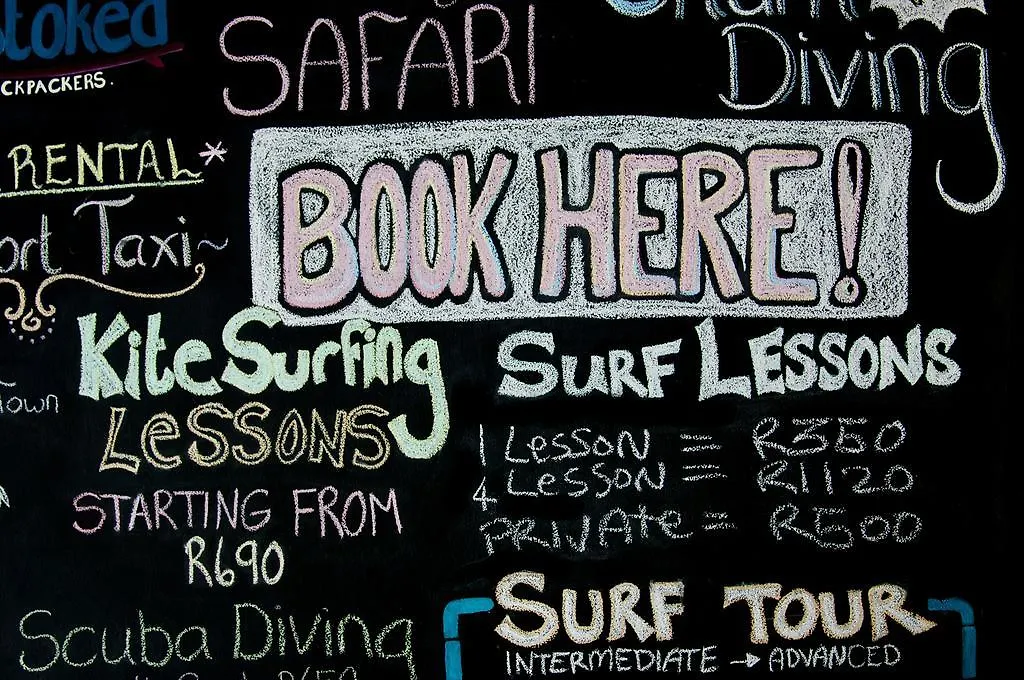 Stoked
CKPACKERS.
SAFARI
Diving
RENTAL*
ort Taxi~
Town
BOOK HERE!
KiteSurfing
LESSONS
STARTING FROM
R690
Scuba Diving
SURF LESSONS
1 LESSON = R350
4 LESSON = R1120
PRIVATE = R500
SURF TOUR
INTERMEDIATE → ADVANCED